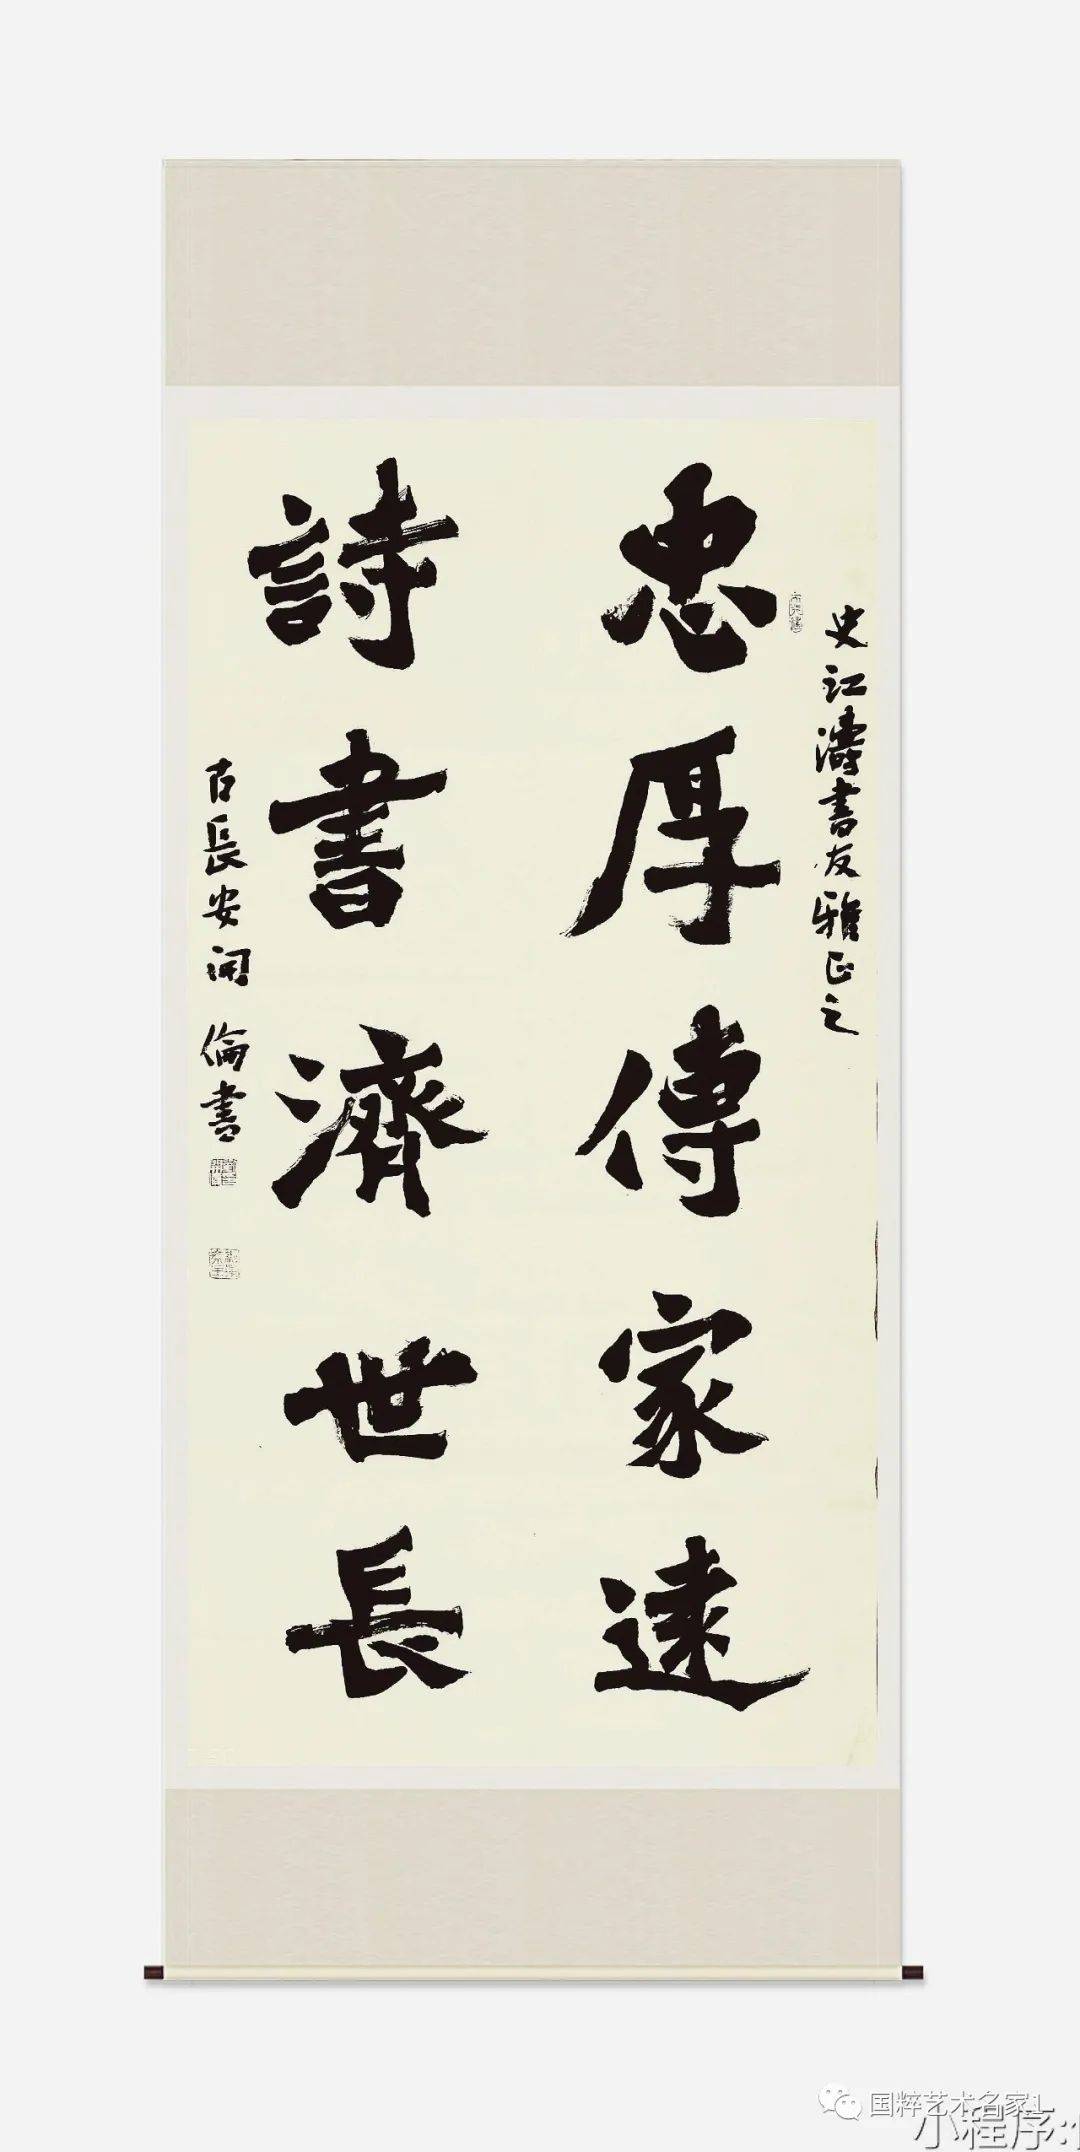 史江濤書友雅正之
忠厚傳家遠
詩書濟世長
古長安開倫書
国粹艺术名家1
小程序: